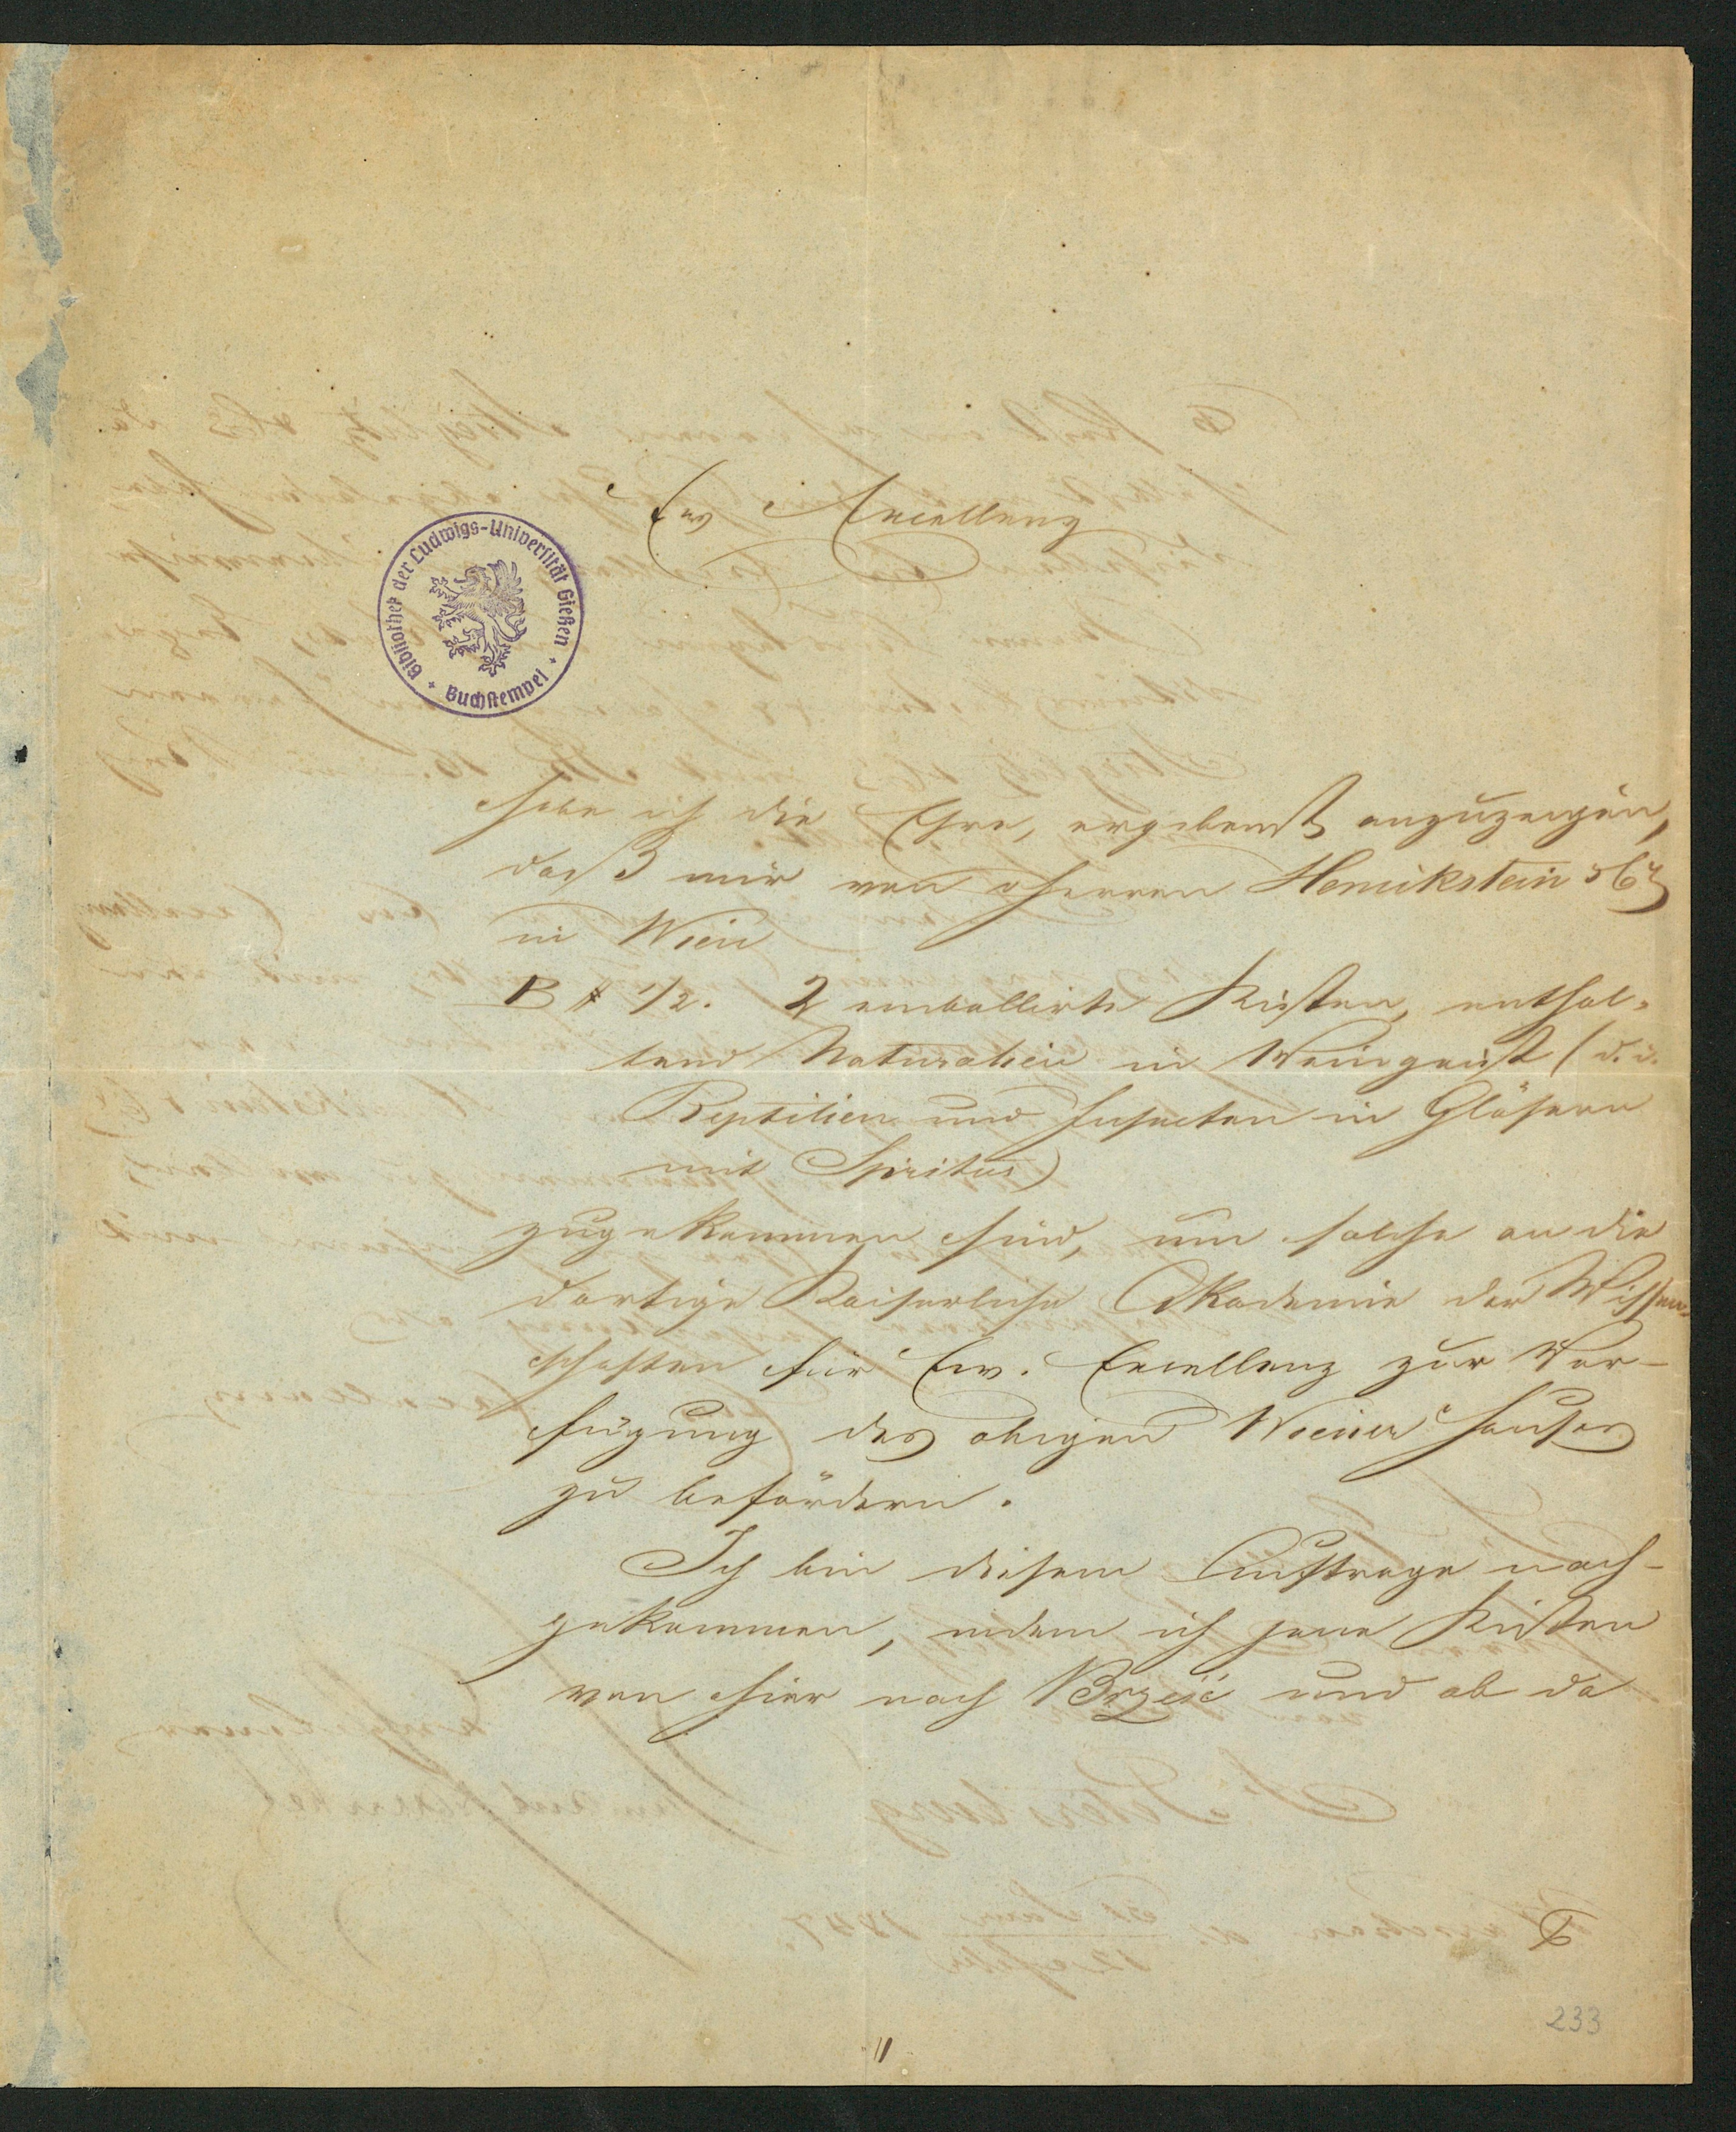 Ew Excellenz
Bibliothek der Ludwigs-Universität Gießen
Buchstempel
habe ich die Ehre, ergebenst anzuzeigen,
daß mir von Herren Henikstein & Co
in Wien
B # 1/2. 2 emballirte Kisten, enthal-
tend Naturalien in Weingeist (d. i.
Reptilien und Insecten in Gläsern
mit Spiritus)
zugekommen sind, um solche an die
dortige Kaiserliche Akademie der Wissen-
schaften für Ew. Excellenz zur Ver-
fügung des obigen Wiener Hauses
zu befördern.
Ich bin diesem Auftrage nach-
gekommen, indem ich jene Kisten
von hier nach Brześć und ab da
233